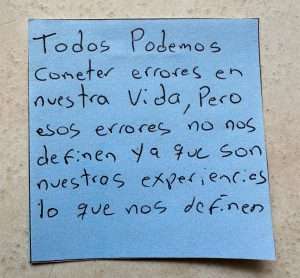 Todos Podemos
cometer errores en
nuestra Vida, Pero
esos errores no nos
definen ya que son
nuestras experiencias
lo que nos definen